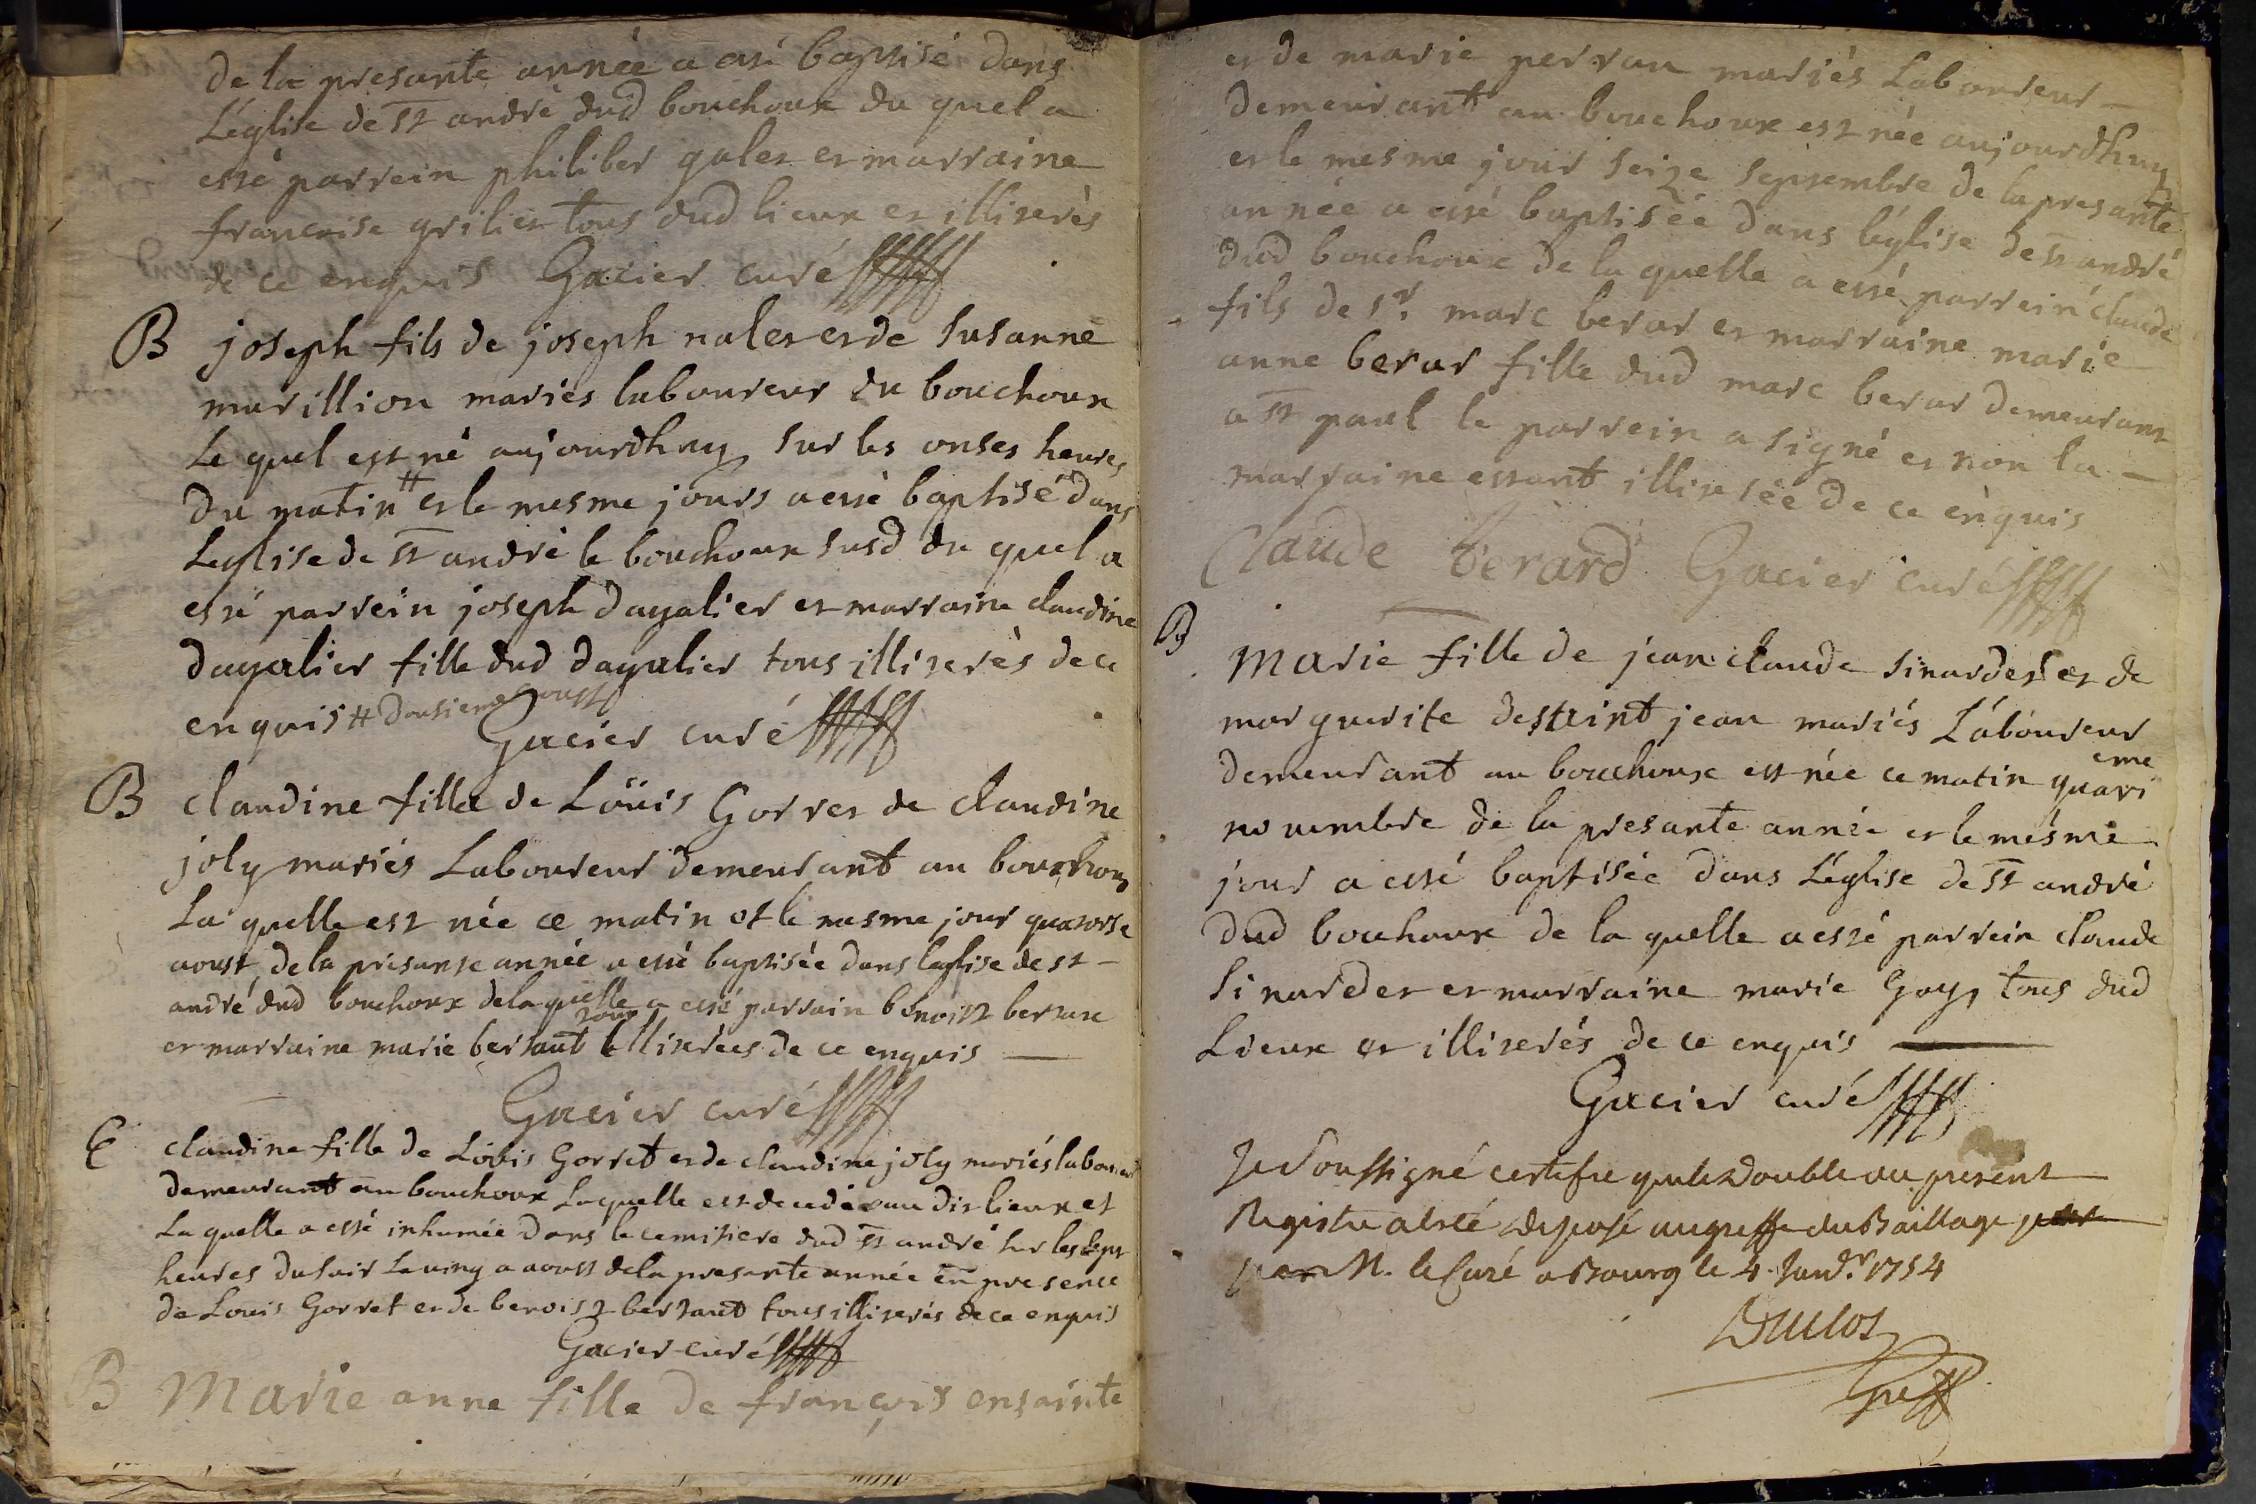 de la presante année a esté baptisé dans
L'église de st andré dud bouchoux du quel a
esté parrein philiber galet et marraine
francoise grilier tous dud lieux et illiterés
de ce enquis Gacier curé
B joseph fils de joseph nalet et de Susanne
marillion mariés laboureur du bouchoux
Le quel est né aujourdhuy sur les onses heures
du matin # et le mesme jours a esté baptisé dans
Leglise de st andré le bouchoux susd du quel a
esté parrein joseph dagalier et marraine claudine
dagalier fille dud dagalier tous illiterés de ce
enquis # aoust
Gacier curé
B claudine fille de Loüis Gorret de claudine
joly mariés Laboureur demeurant au bouchoux
La quelle est née ce matin et le mesme jour quatorse
aoust de la presante année a esté baptisée dans leglise de st
andré dud bouchoux de la quelle a esté parrain benoist bertaut
tous
et marraine marie bertaut illiterées de ce enquis
Gacier curé
E claudine fille de Loüis Gorret et de claudine joly mariés laboureur
demeurant au bouchoux Laquelle est decedée au dit lieux et
La quelle a esté inhumée dans le cemitiere dud st andré sur les sept
heures du soir Le aoust de la presante année en presence
de Louis Gorret et de benoist bertaut tous illiterés de ce enquis
Gacier curé
B Marie anne fille de françois ensainte
et de marie perran mariés Laboureur
demeurant au bouchoux est née aujourdhuy
et le mesme jour seize septembre de la presante
année a esté baptisée dans l'église de st andré
dud bouchoux de la quelle a esté parrein claude
fils de sr. marc berar et marraine marie
anne berar fille dud marc berar demeurant
a st paul le parrein a signé et non la
marraine estant illiterée de ce enquis
Claude berard Gacier curé
B Marie fille de jean claude sinardet et de
marguerite destaint jean mariés Laboureur
eme
demeurant au bouchoux est née ce matin quatri
novembre de la presante année et le mesme
jour a esté baptisée dans L'église de st andré
dud bouchoux de la quelle a esté parrein claude
sinardet et marraine marie Goy, tous dud
Lieux et illiterés de ce enquis
Gacier curé
Je Soussigné certifie que le Double au présent
Registre a été déposé au greffe du Baillage
par M. le Curé a Bourg le 4. Janvr. 1754
Duclos
Greff